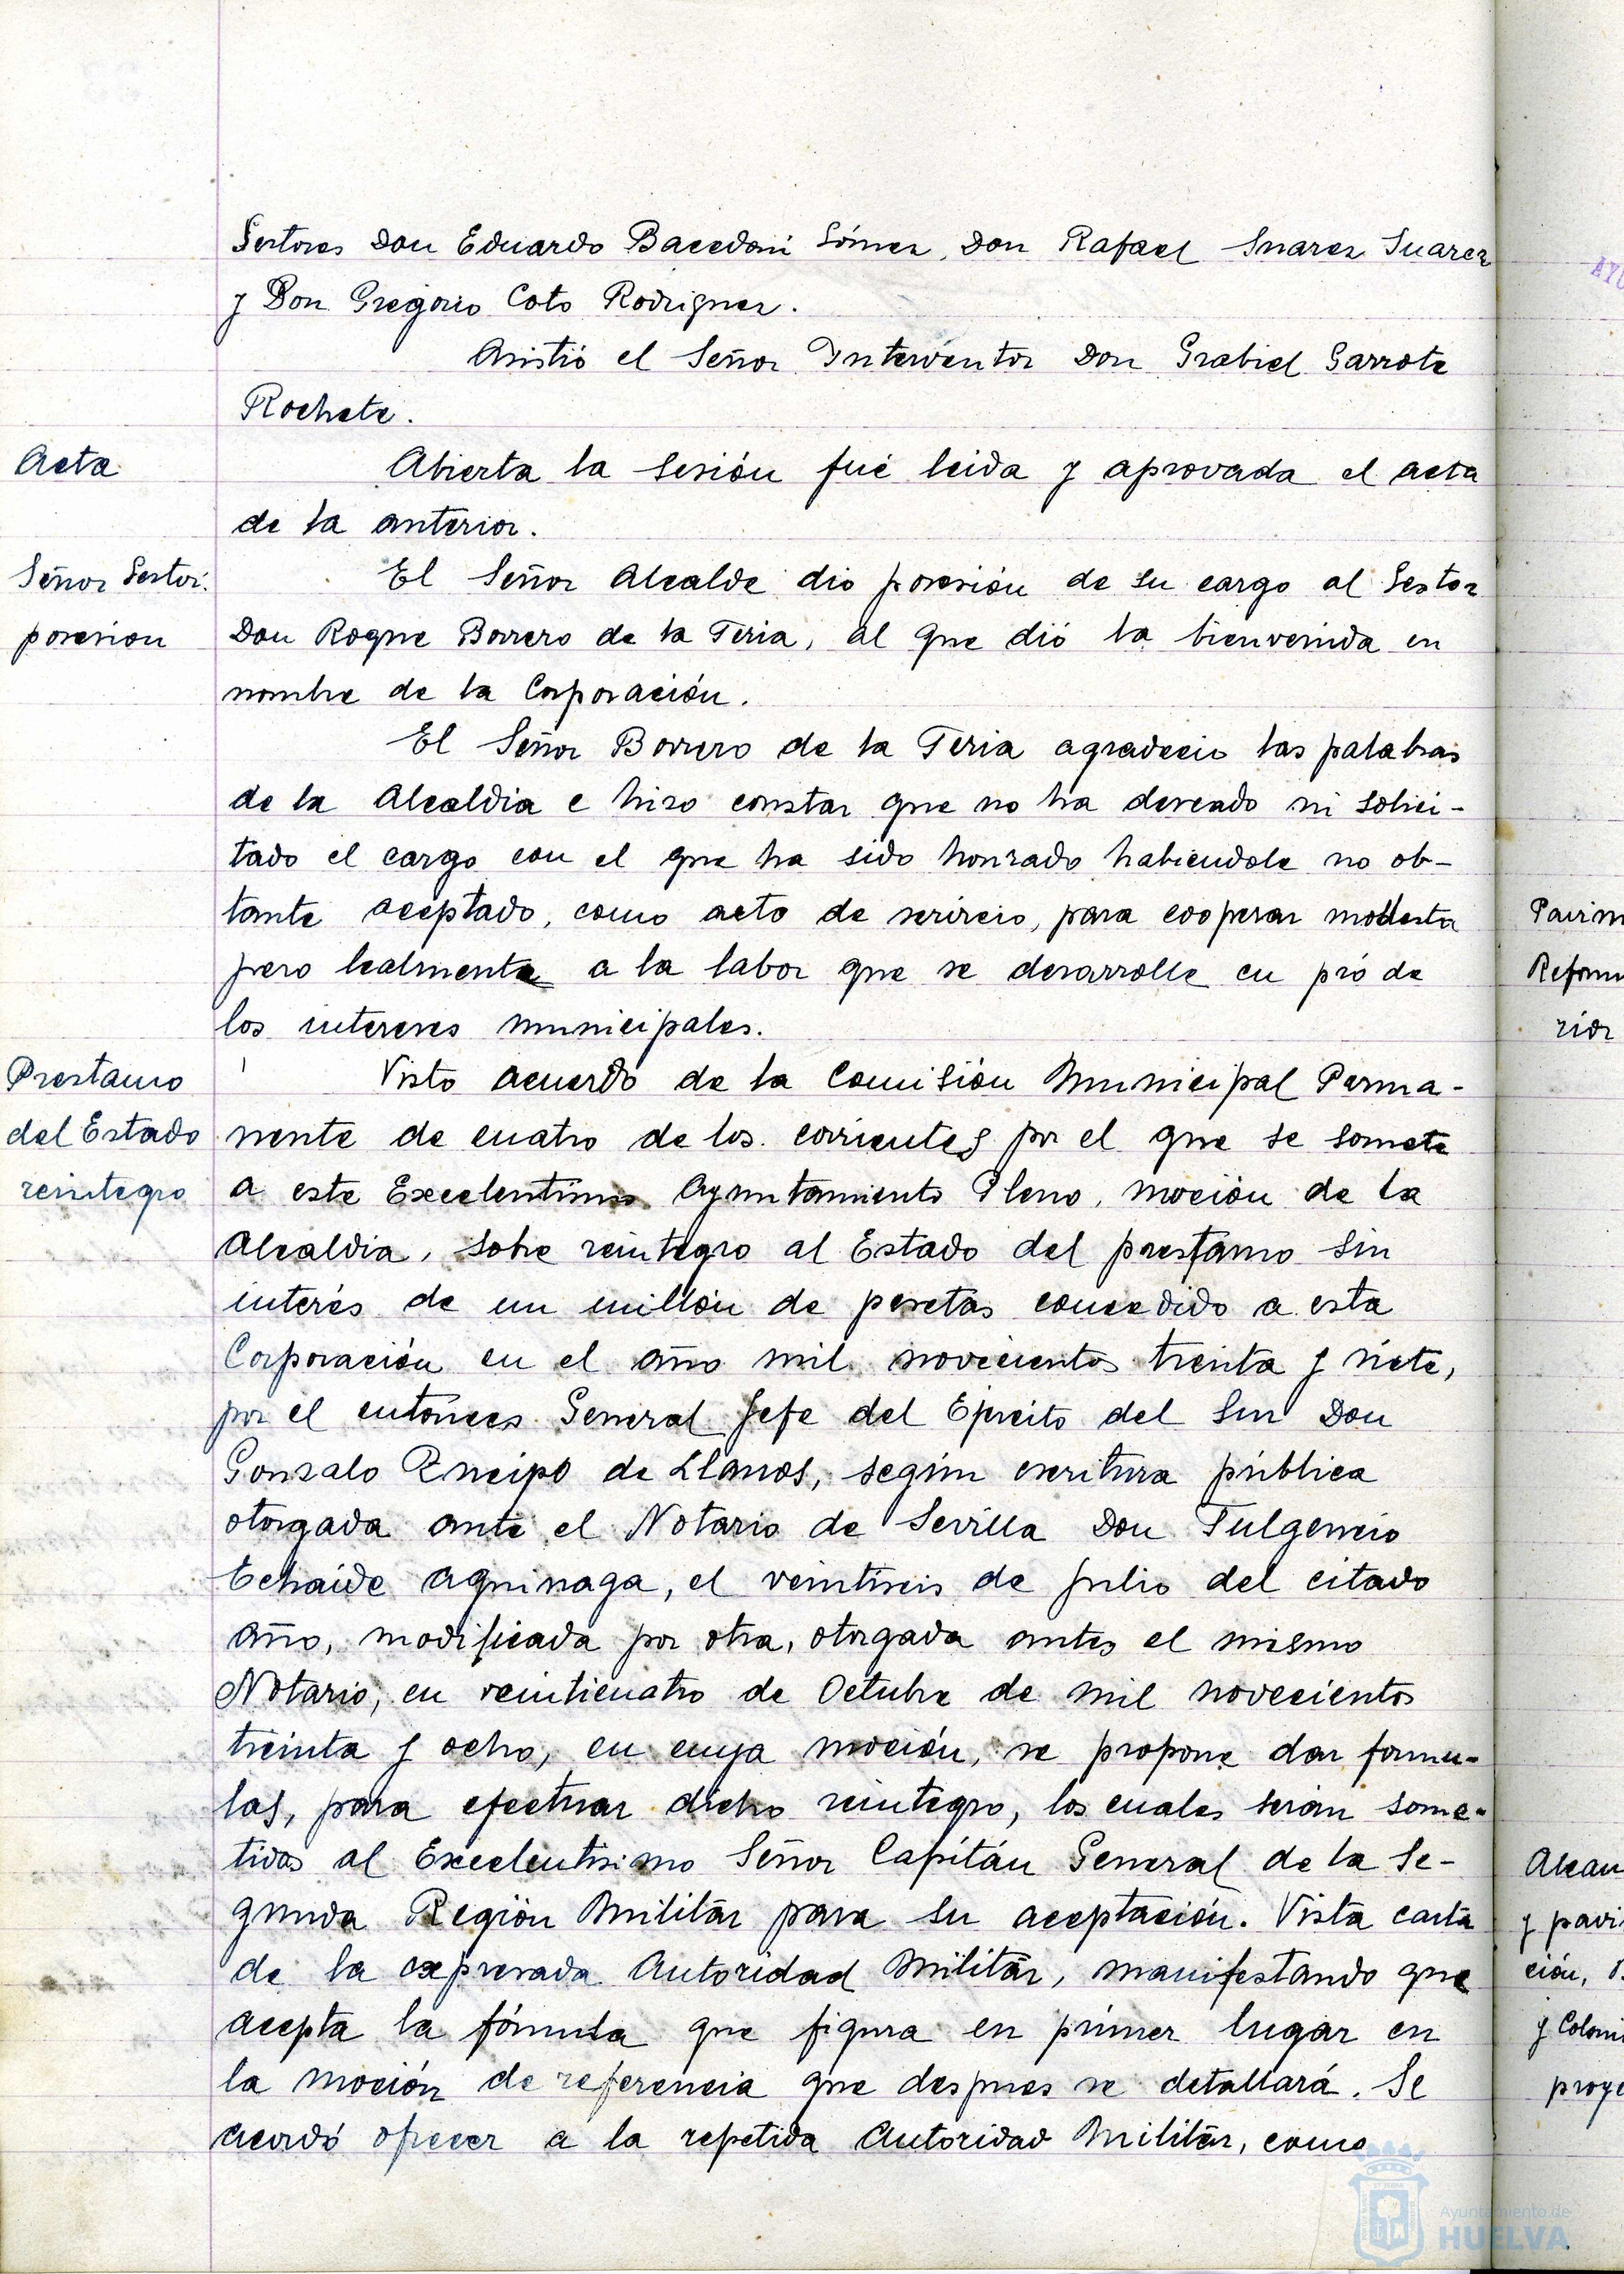 Gestores Don Eduardo Bacedoni Gómez, Don Rafael Suarez Suarez
y Don Gregorio Coto Rodriguez.
Asistió el Señor Interventor Don Grabiel Garrote
Rochete.
Acta
Abierta la sesión fué leida y aprovada el acta
de la anterior.
Señor Gestor.
posesion
El Señor Alcalde dio posesión de su cargo al Gestor
Don Roque Borrero de la Feria, al que dió la bienvenida en
nombre de la Corporación.
El Señor Borrero de la Feria agradecio las palabras
de la Alcaldia e hizo constar que no ha deseado ni solici-
tado el cargo con el que ha sido honrado habiendole no ob-
tante aceptado, como acto de servicio, para cooperar modesta
pero lealmente a la labor que se desarrolle en pró de
los intereses municipales.
Prestamo
del Estado
reintegro
Visto acuerdo de la Comisión Municipal Perma-
nente de cuatro de los corrientes por el que se somete
a este Excelentisimo Ayuntamiento Pleno, moción de la
Alcaldia, sobre reintegro al Estado del prestamo sin
interés de un millón de pesetas concedido a esta
Corporación en el año mil novecientos treinta y siete,
por el entonces General Jefe del Ejercito del Sur Don
Gonzalo Queipo de Llanos, según escritura pública
otorgada ante el Notario de Sevilla Don Fulgencio
Echaide Aguinaga, el veintiseis de julio del citado
año, modificada por otra, otorgada antes el mismo
Notario, en veinticuatro de Octubre de mil novecientos
treinta y ocho, en cuya moción, se propone dar formu-
las, para efectuar dicho reintegro, los cuales serán some-
tidas al Excelentisimo Señor Capitán General de la Se-
gunda Región Militar para su aceptación. Vista carta
de la expresada Autoridad Militar, manifestando que
acepta la fórmula que figura en primer lugar en
la moción de referencia que despues se detallará. Se
acordó ofrecer a la repetida Autoridad Militar, como
AYU
Pavim
Reform
rior
Alcan
y pavi
ción,
y Coloni
proye
Ayuntamiento de
HUELVA